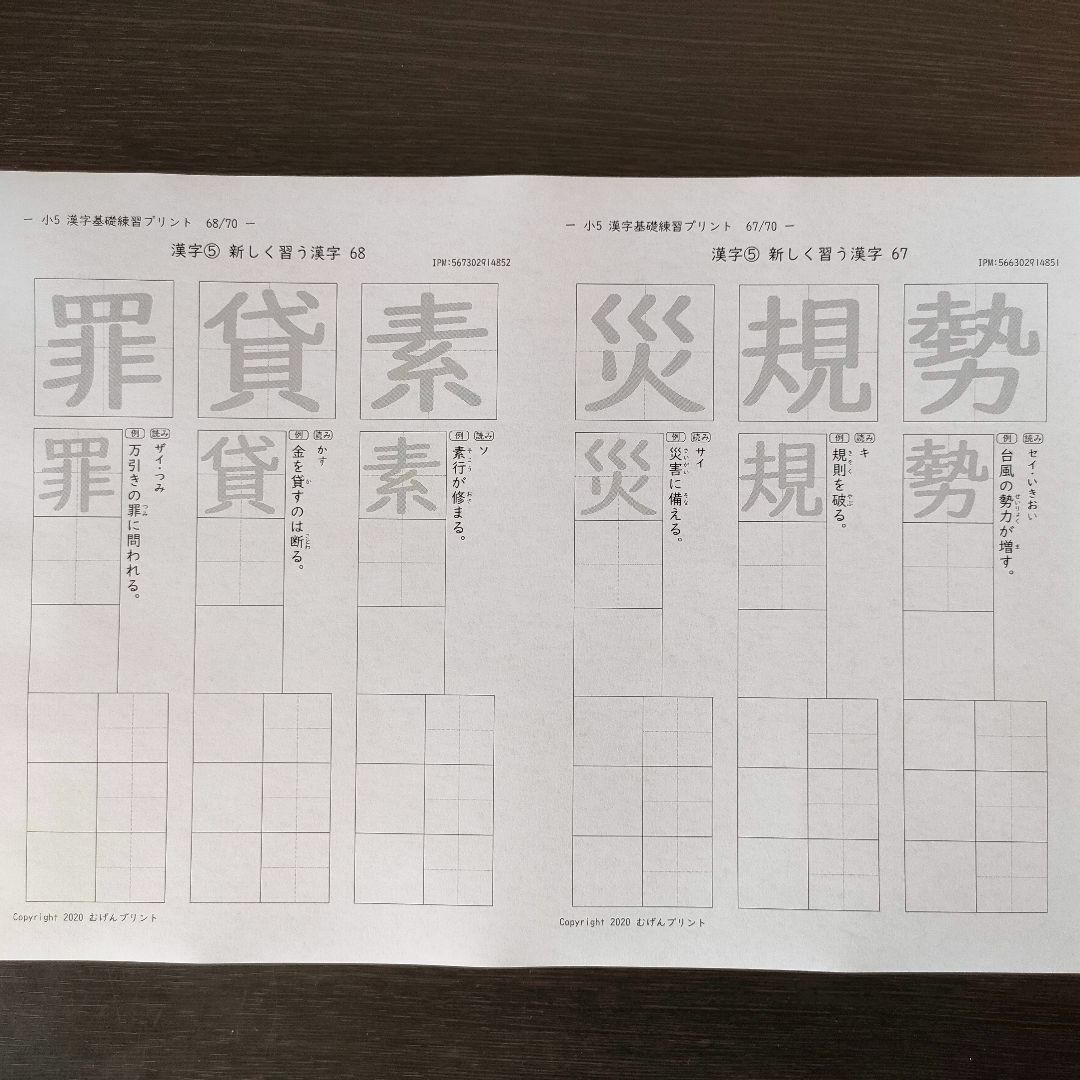 ― 小5 漢字基礎練習プリント 68/70 ―
漢字⑤ 新しく習う漢字 68
IPM:567302914852
素
素
読み
ソ
例
素行が修まる。
そこう
おさ
貸
貸
読み
かす
例
金を貸すのは断る。
か
ことわ
罪
罪
読み
ザイ・つみ
例
万引きの罪に問われる。
つみ
Copyright 2020 むげんプリント
― 小5 漢字基礎練習プリント 67/70 ―
漢字⑤ 新しく習う漢字 67
IPM:566302914851
勢
勢
読み
セイ・いきおい
例
台風の勢力が増す。
せいりょく
ま
規
規
読み
キ
例
規則を破る。
きそく
やぶ
災
災
読み
サイ
例
災害に備える。
さいがい
そな
Copyright 2020 むげんプリント